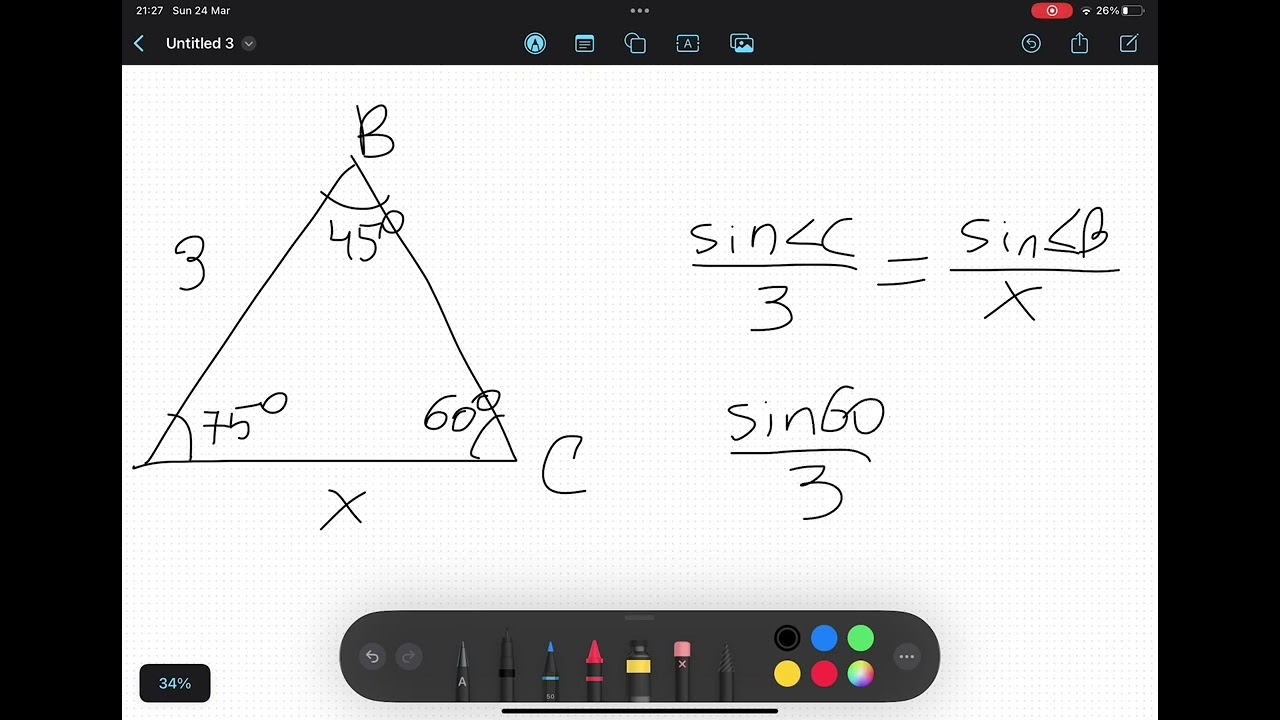 21:27 Sun 24 Mar
26%
Untitled 3
A
B
3
45°
75°
60°
C
x
sin<C / 3 = sin<B / x
sin60 / 3
A
50
34%